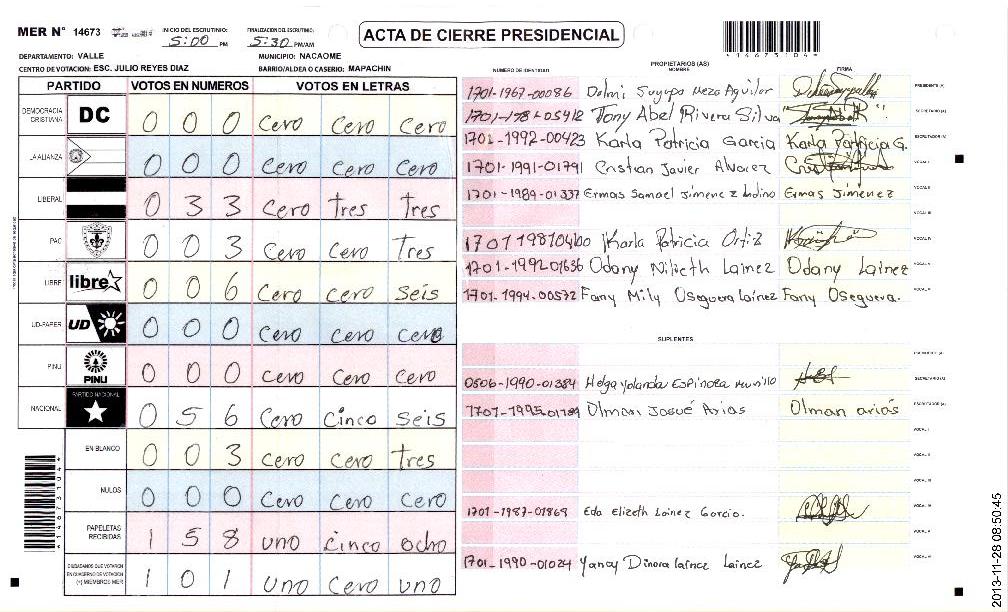 MER N° 14673 INICIO DEL ESCRUTINIO: 5:00 PM FINALIZACION DEL ESCRUTINIO: 5:30 PM/AM ACTA DE CIERRE PRESIDENCIAL
*14673104*
DEPARTAMENTO: VALLE MUNICIPIO: NACAOME
CENTRO DE VOTACION: ESC. JULIO REYES DIAZ BARRIO/ALDEA O CASERIO: MAPACHIN
PARTIDO VOTOS EN NUMEROS VOTOS EN LETRAS
DEMOCRACIA CRISTIANA DC 0 0 0 Cero Cero Cero
LA ALIANZA 0 0 0 Cero Cero Cero
LIBERAL 0 3 3 Cero Tres Tres
PAC 0 0 3 Cero Cero Tres
LIBRE libre 0 0 6 Cero Cero Seis
UD-FAPER UD 0 0 0 Cero Cero Cero
PINU PINU 0 0 0 Cero Cero Cero
NACIONAL PARTIDO NACIONAL 0 5 6 Cero Cinco Seis
EN BLANCO 0 0 3 Cero Cero tres
NULOS 0 0 0 Cero Cero Cero
PAPELETAS RECIBIDAS 1 5 8 uno Cinco ocho
CIUDADANOS QUE VOTARON EN CUADERNO DE VOTACION (+) MIEMBROS MER 1 0 1 uno Cero uno
*14673104*
PROPIETARIOS (AS)
NUMERO DE IDENTIDAD NOMBRE FIRMA
1701-1967-00086 Delmi Suyapa Meza Aguilar PRESIDENTE (A)
Tony Abel Rivera Silva SECRETARIO (A)
1701-1992-00423 Karla Patricia Garcia Karla Patricia G. ESCRUTADOR (A)
1701-1991-01791 Cristian Javier Alvarez VOCAL I
1701-1989-01337 Ermas Samael Jimenez Ermas Jimenez VOCAL II
VOCAL III
Karla Patricia Ortiz VOCAL IV
1701-1992-01636 Odany Nilieth Lainez Odany Lainez VOCAL V
1701-1994-00572 Fany Mily Oseguera Lainez Fany Oseguera.
SUPLENTES
PRESIDENTE (A)
0506-1990-01384 Helga Yolanda Espinoza Murillo SECRETARIO (A)
Olman Josué Arias Olman arias ESCRUTADOR (A)
VOCAL I
VOCAL II
VOCAL III
1701-1987-01869 Eda Elizeth Lainez Garcia. VOCAL IV
VOCAL V
1701-1990-01024 Yancy Dinora Lainez Lainez VOCAL VI
2013-11-28 08:50:45